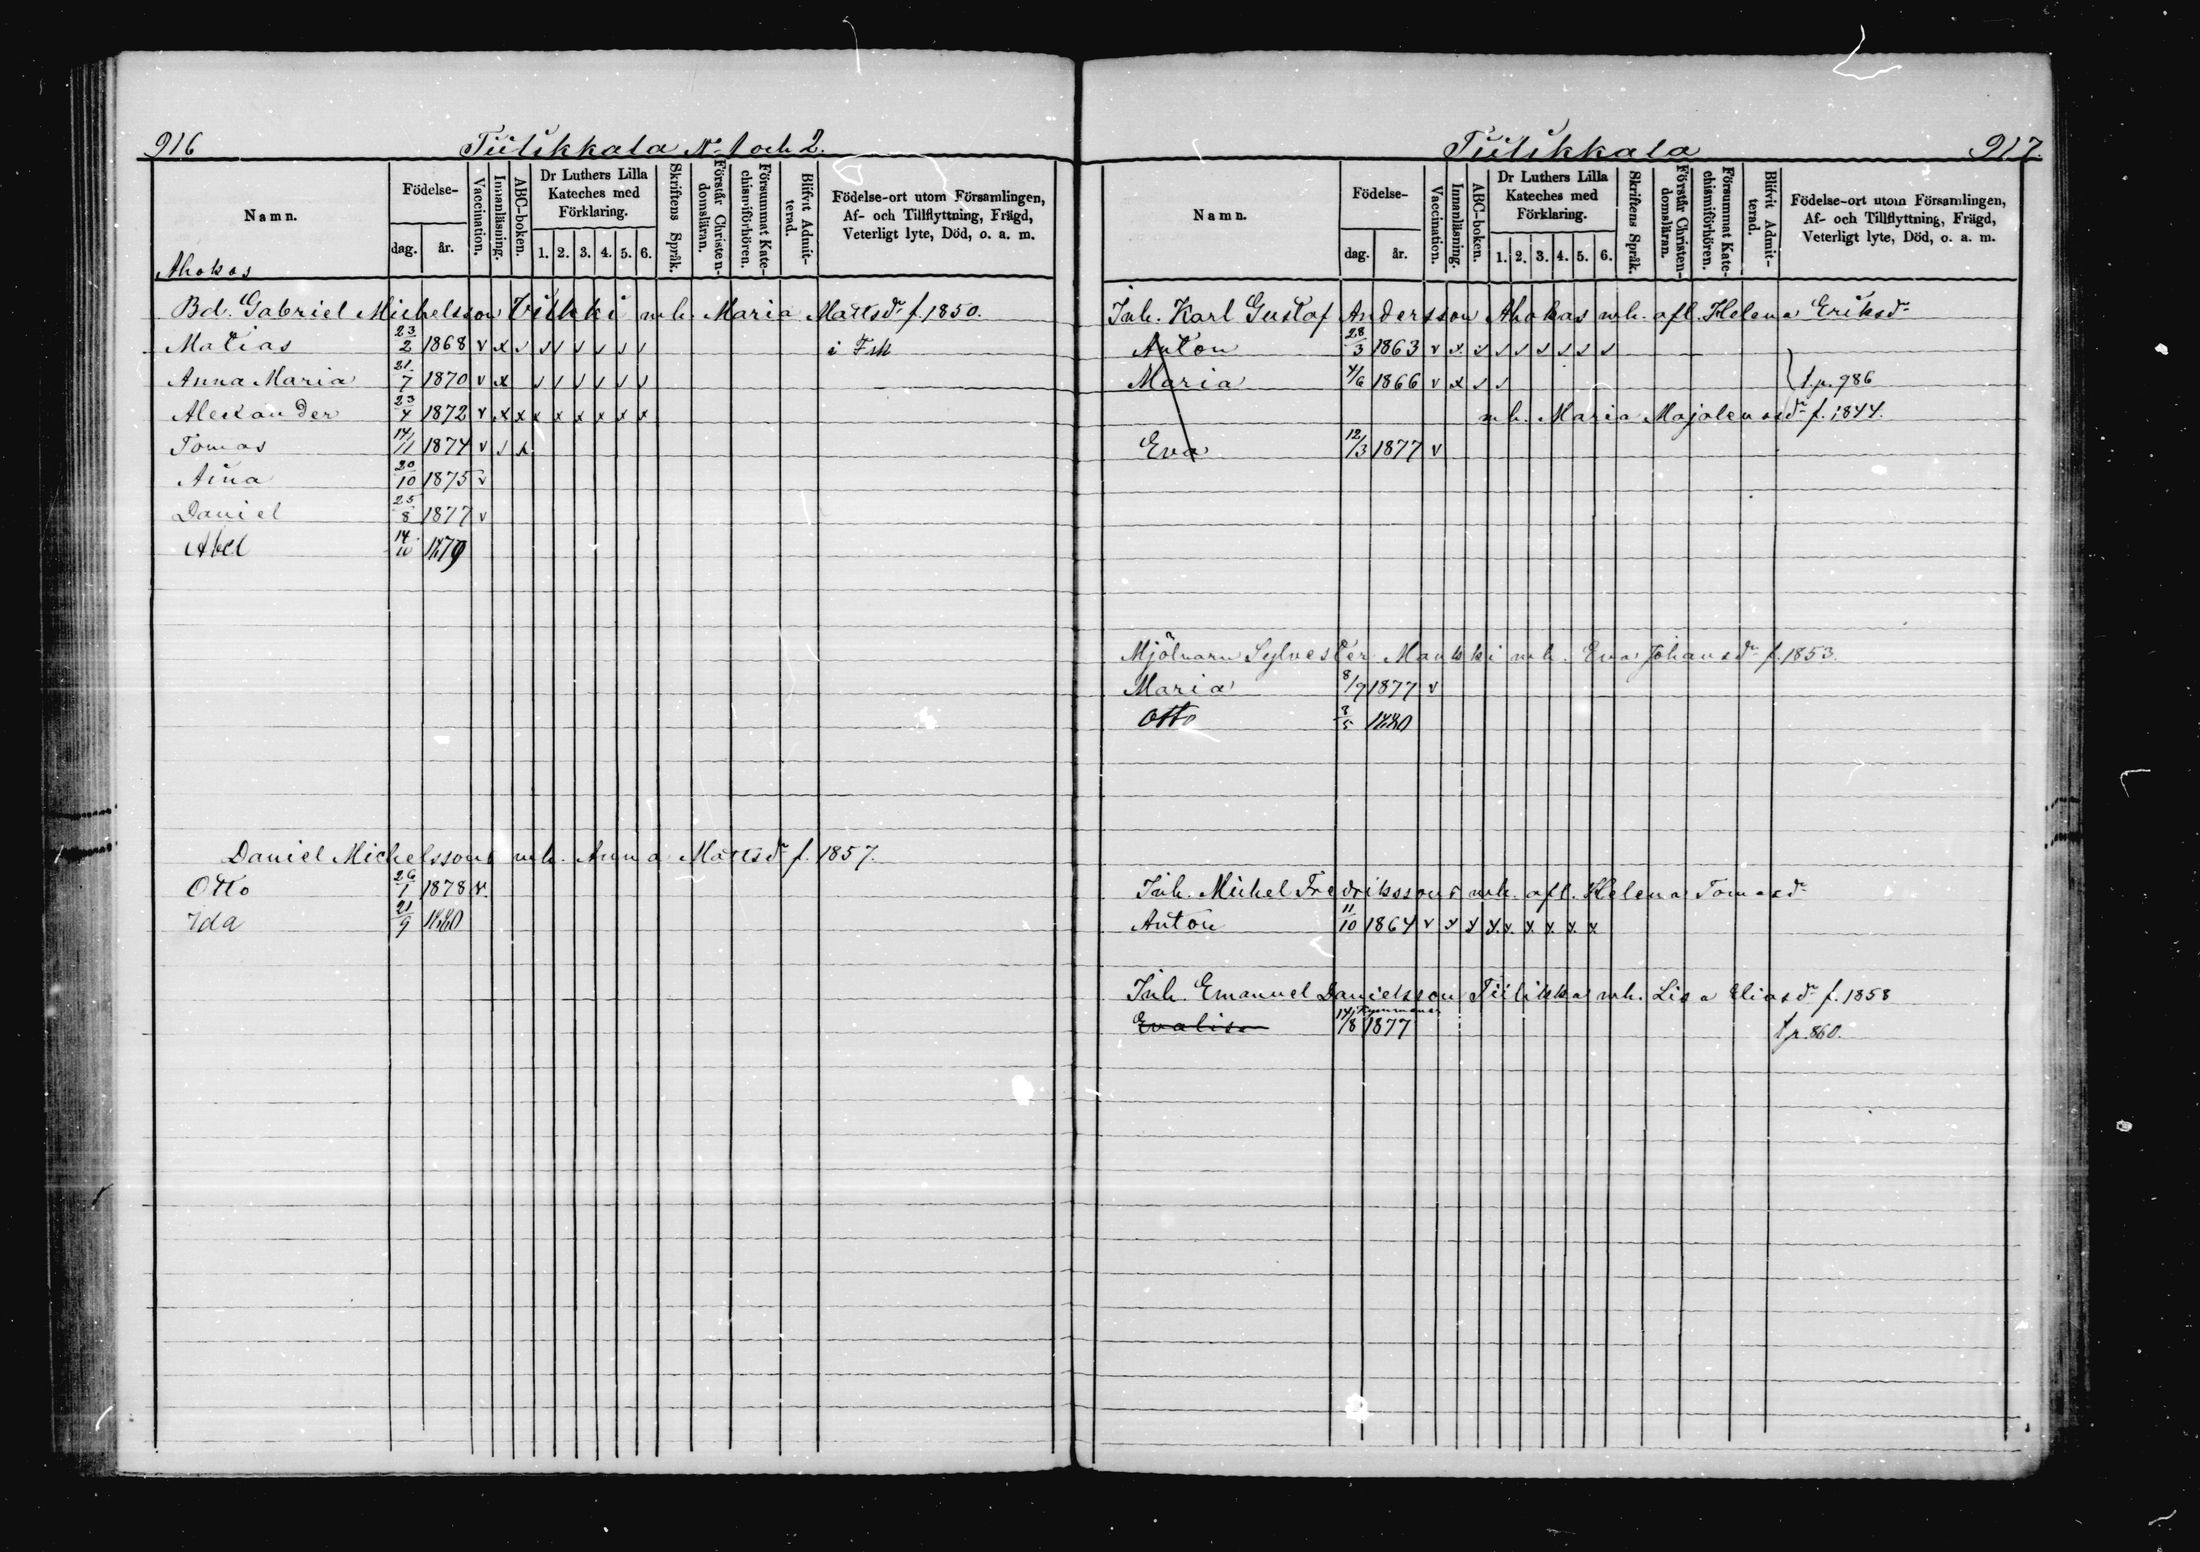 916 Tiilikkala No 1 och 2.
Namn. Födelse- dag. år. Vaccination. Innanläsning. ABC-boken. Dr Luthers Lilla Kateches med Förklaring. 1. 2. 3. 4. 5. 6. Skriftens Språk. Förstår Christendomsläran. Försummat Katechismiförhören. Blifvit Admitterad. Födelse-ort utom Församlingen, Af- och Tillflyttning, Frägd, Veterligt lyte, Död, o. a. m.
Ahokas
Bd. Gabriel Michelsson Vilkki mh. Maria Mattsdr f. 1850.
Matias 23/2 1868 v x v v v v v v v i Fsk
Anna Maria 21/7 1870 v x v v v v v v
Alexander 23/4 1872 v x x x x x x x x
Tomas 14/11 1874 v v x
Aina 20/10 1875 v
Daniel 25/8 1877 v
Abel 14/10 1879
Daniel Michelsson mh. Anna Mattsdr f. 1857.
Otto 26/1 1878 v.
Ida 21/9 1880
Tiilikkala 917.
Namn. Födelse- dag. år. Vaccination. Innanläsning. ABC-boken. Dr Luthers Lilla Kateches med Förklaring. 1. 2. 3. 4. 5. 6. Skriftens Språk. Förstår Christendomsläran. Försummat Katechismiförhören. Blifvit Admitterad. Födelse-ort utom Församlingen, Af- och Tillflyttning, Frägd, Veterligt lyte, Död, o. a. m.
Inh. Karl Gustaf Andersson Ahokas mh. afl. Helena Eriksdr
Anton 28/3 1863 v x v v v v v v v
Maria 4/6 1866 v x v v t. p. 986
mh. Maria Majalenasdr f. 1844.
Eva 12/3 1877 v
Mjölnarn Sylvester Mankki mh. Eva Johansdr f. 1853.
Maria 8/9 1877 v
Otto 3/5 1880
Inh. Michel Fredriksson mh. afl. Helena Tomasdr
Anton 11/10 1864 v x x x x x x x x
Inh. Emanuel Danielsson Tiilikka mh. Lisa Eliasdr f. 1858
Evalisa 14/8 1877 t p. 860.